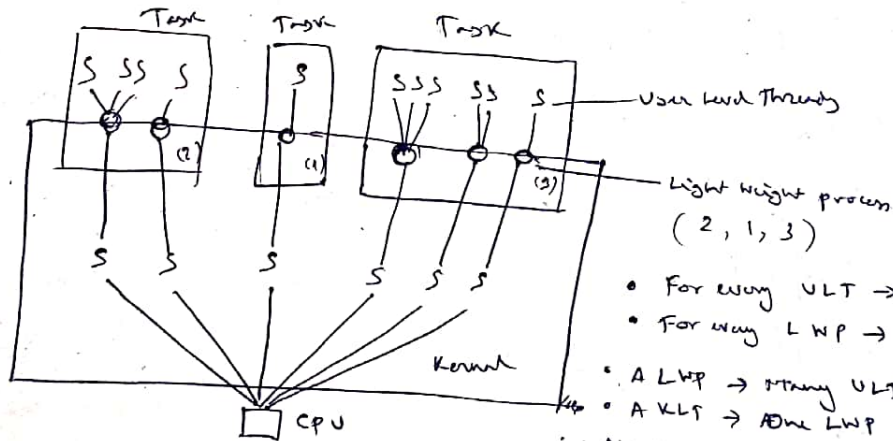 Task Task Task
S SS S S SSS SS S User Level Threads
(2) (1) (3)
Light weight process
(2, 1, 3)
S S S S S S
• For every ULT →
• For every LWP →
Kernel
• A LWP → Many ULT
• A KLT → One LWP
CPU